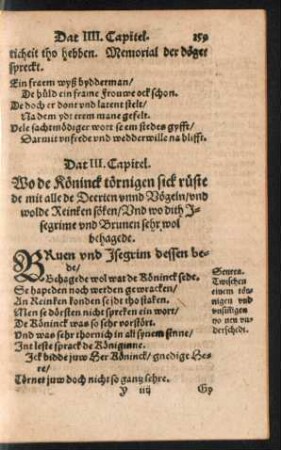 Dat IIII. Capitel. 159
richeit tho hebben. Memorial der döget
spreckt.
Ein fraem wyß bydderman/
De hüld ein frame Frouwe ock schon.
De doch er dont vnd latent stelt/
Na dem ydt erem mane gefelt.
Vele sachtmödiger wort se em stedes gyfft/
Darmit vnfrede vnd wedderwille na blifft.
Dat III. Capitel.
Wo de Köninck törnigen sick rüste
de mit alle de Deerten vnnd Vögeln/vnd
wolde Reinken söken/Vnd wo dith J-
segrime vnd Brunen sehr wol
behagede.
BRuen vnd Jsegrim dessen be-
de/
Behagede wol wat de Köninck sede.
Se hapeden noch werden gewracken/
An Reinken konden se idt tho staken.
Men se dörsten nicht spreken ein wort/
De Köninck was so sehr vorstört.
Vnd was sehr thornich in all synem sinne/
Int leste sprack de Königinne.
Jck bidde juw Her Köninck/gnedige He-
re/
Törnet juw doch nicht so gantz sehre.
Twischen
einem tör-
nigen vnd
vnderschedt.
Y iiij Gy